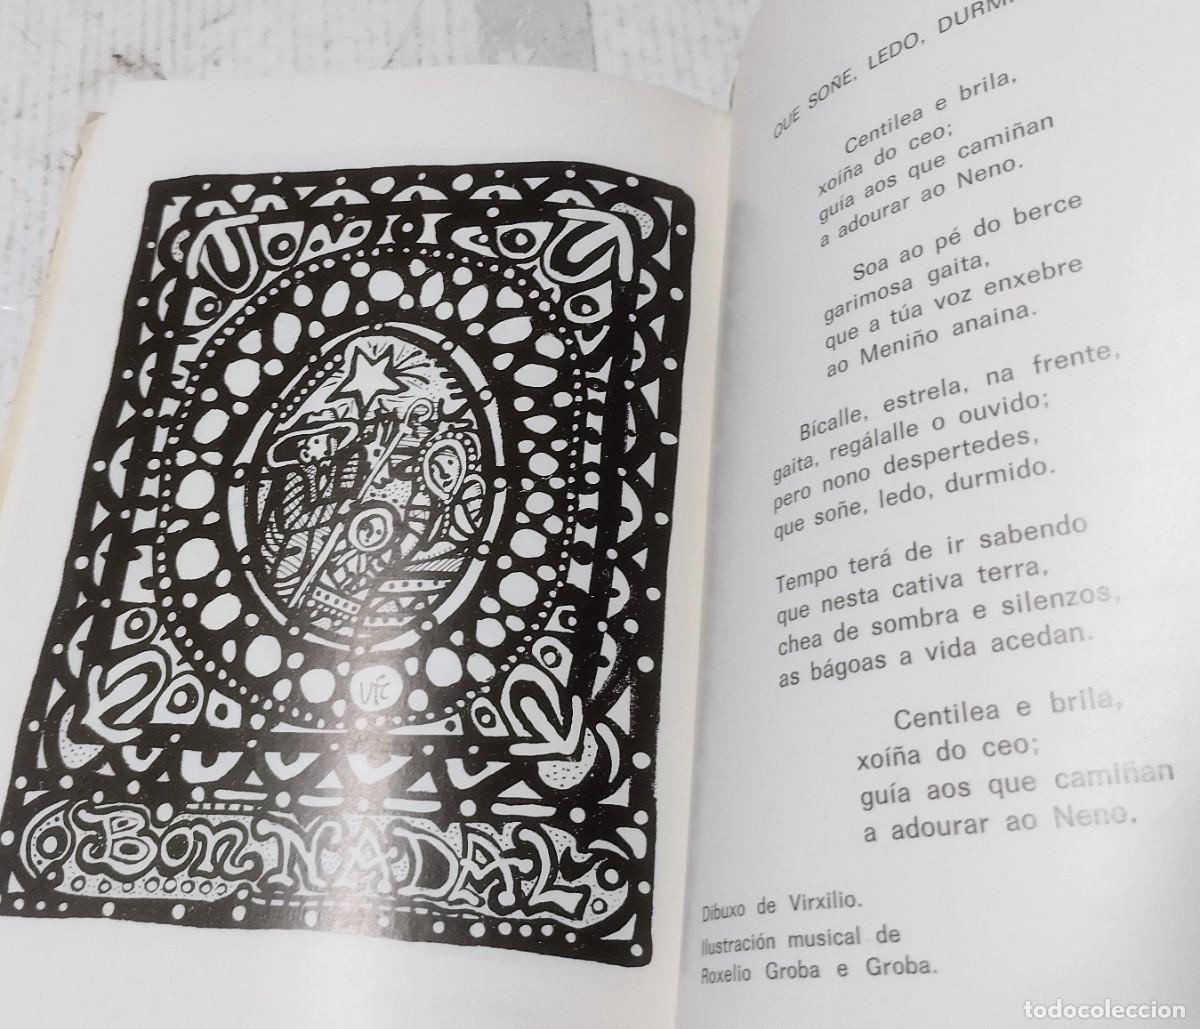 BON NADAL
VFC
QUE SOÑE, LEDO,
Centilea e brila,
xoíña do ceo;
guía aos que camiñan
a adourar ao Neno.
Soa ao pé do berce
garimosa gaita,
que a túa voz enxebre
ao Meniño anaina.
Bícalle, estrela, na frente,
gaita, regálalle o ouvido;
pero nono despertedes,
que soñe, ledo, durmido.
Tempo terá de ir sabendo
que nesta cativa terra,
chea de sombra e silenzos,
as bágoas a vida acedan.
Centilea e brila,
xoíña do ceo;
guía aos que camiñan
a adourar ao Neno.
Dibuxo de Virxilio.
Ilustración musical de
Roxelio Groba e Groba.
todocoleccion